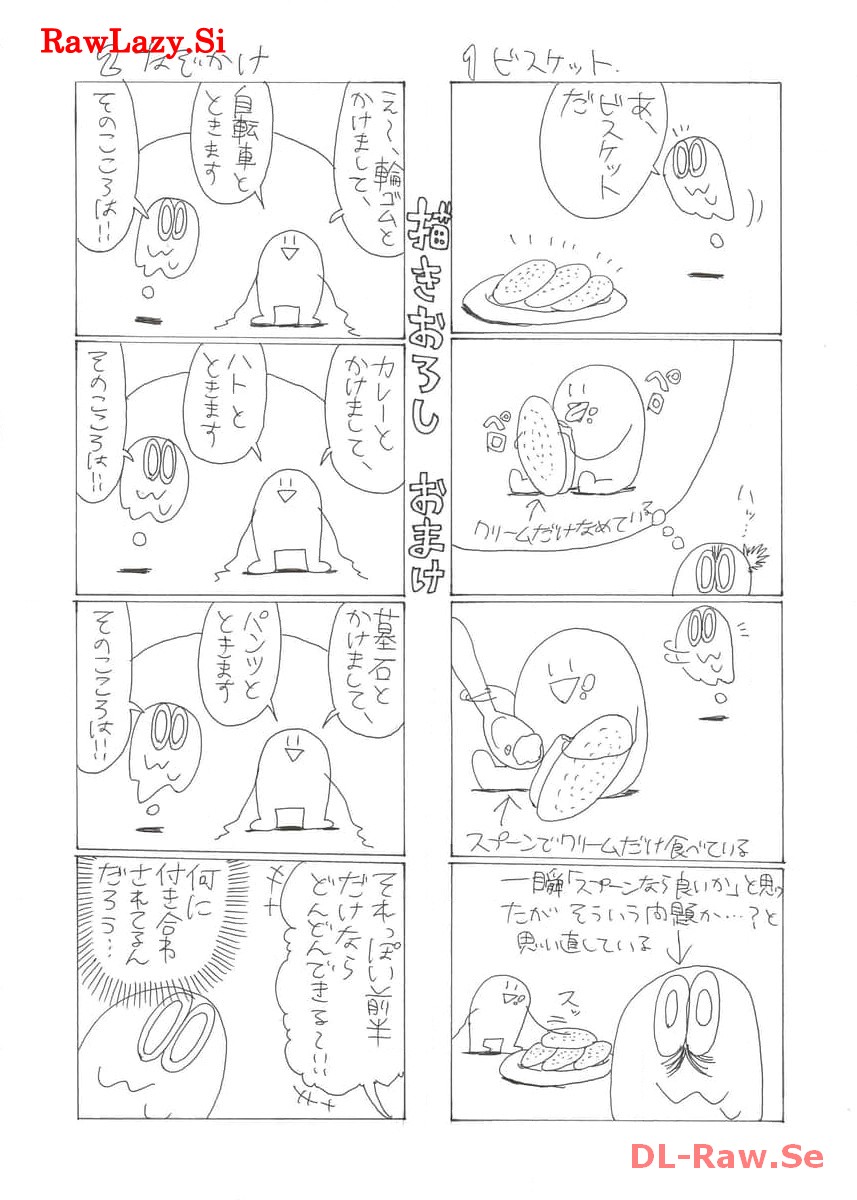 RawLazy.Si
1 ビスケット.
あ、
ビスケット
だ
ペロ
ペロ
クリームだけなめている
ハッ…
スプーンでクリームだけ食べている
一瞬「スプーンなら良いか」と思っ
たが そういう問題か…?と
思い直している
スッ
描きおろし おまけ
2 なぞかけ
え〜、輪ゴムと
かけまして、
自転車と
ときます
そのこころは!!
カレーと
かけまして、
ハトと
ときます
そのこころは!!
墓石と
かけまして、
パンツと
ときます
そのこころは!!
それっぽい前半
だけなら
どんどんできる〜!!
何に
付き合わ
されてるん
だろう…
DL-Raw.Se